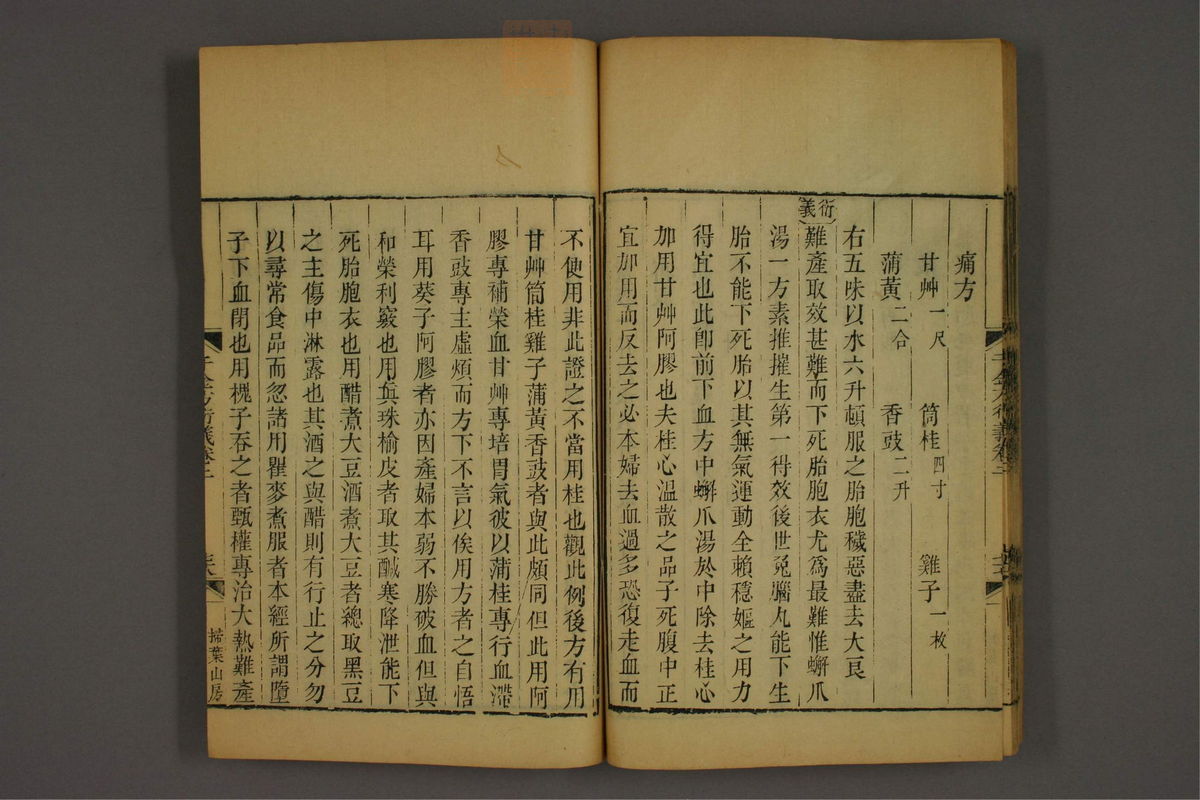 痛方
甘艸一尺 筒桂四寸 雞子一枚
蒲黃二合 香豉二升
右五味以水六升頓服之胎胞穢惡盡去大良
衍義
難產取效甚難而下死胎胞衣尤爲最難惟蠏爪
湯一方素推摧生第一得效後世兔腦丸能下生
胎不能下死胎以其無氣運動全賴穩嫗之用力
得宜也此卽前下血方中蠏爪湯於中除去桂心
加用甘艸阿膠也夫桂心溫散之品子死腹中正
宜加用而反去之必本婦去血過多恐復走血而
不使用非此證之不當用桂也觀此例後方有用
甘艸筒桂雞子蒲黃香豉者與此頗同但此用阿
膠專補榮血甘艸專培胃氣彼以蒲桂專行血滯
香豉專主虛煩而方下不言以俟用方者之自悟
耳用葵子阿膠者亦因產婦本弱不勝破血但與
和榮利竅也用眞珠榆皮者取其鹹寒降泄能下
死胎胞衣也用醋煮大豆酒煮大豆者總取黑豆
之主傷中淋露也其酒之與醋則有行止之分勿
以尋常食品而忽諸用瞿麥煮服者本經所謂墮
子下血閉也用槐子吞之者甄權專治大熱難產
千金方衍義卷二
掃葉山房